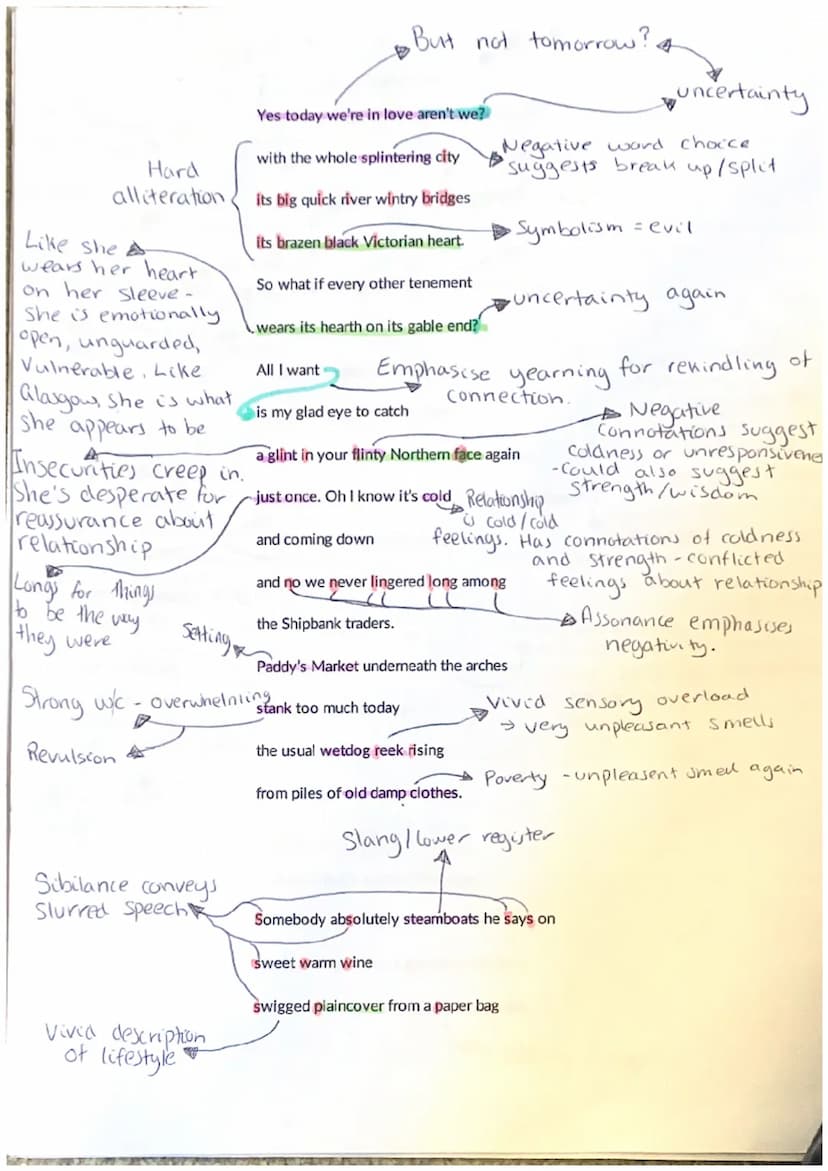 But not tomorrow?
uncertainty
Yes today we're in love aren't we?
with the whole splintering city
Negative word choice
suggests break up/split
Hard
alliteration
its big quick river wintry bridges
its brazen black Victorian heart.
Symbolism = evil
Like she
wears her heart
on her sleeve -
She is emotionally
open, unguarded,
Vulnerable. Like
Glasgow, she is what
she appears to be
So what if every other tenement
wears its hearth on its gable end?
uncertainty again
All I want
Emphasise yearning for rekindling of
connection.
is my glad eye to catch
a glint in your flinty Northern face again
Negative
connotations suggest
coldness or unresponsivenes
- could also suggest
strength/wisdom
Insecurities creep in.
She's desperate for
reassurance about
relationship
just once. Oh I know it's cold
Relationship
is cold/cold
feelings. Has connotations of coldness
and strength - conflicted
feelings about relationship
and coming down
Longs for things
to be the way
they were
and no we never lingered long among
the Shipbank traders.
Assonance emphasises
negativity.
Setting
Paddy's Market underneath the arches
Strong w/c - overwhelming
Revulsion
stank too much today
Vivid sensory overload
→ very unpleasant smells
the usual wetdog reek rising
from piles of old damp clothes.
Poverty - unpleasent smell again
Slang/lower register
Sibilance conveys
Slurred speech
Somebody absolutely steamboats he says on
sweet warm wine
swigged plaincover from a paper bag
Vivid description
of lifestyle